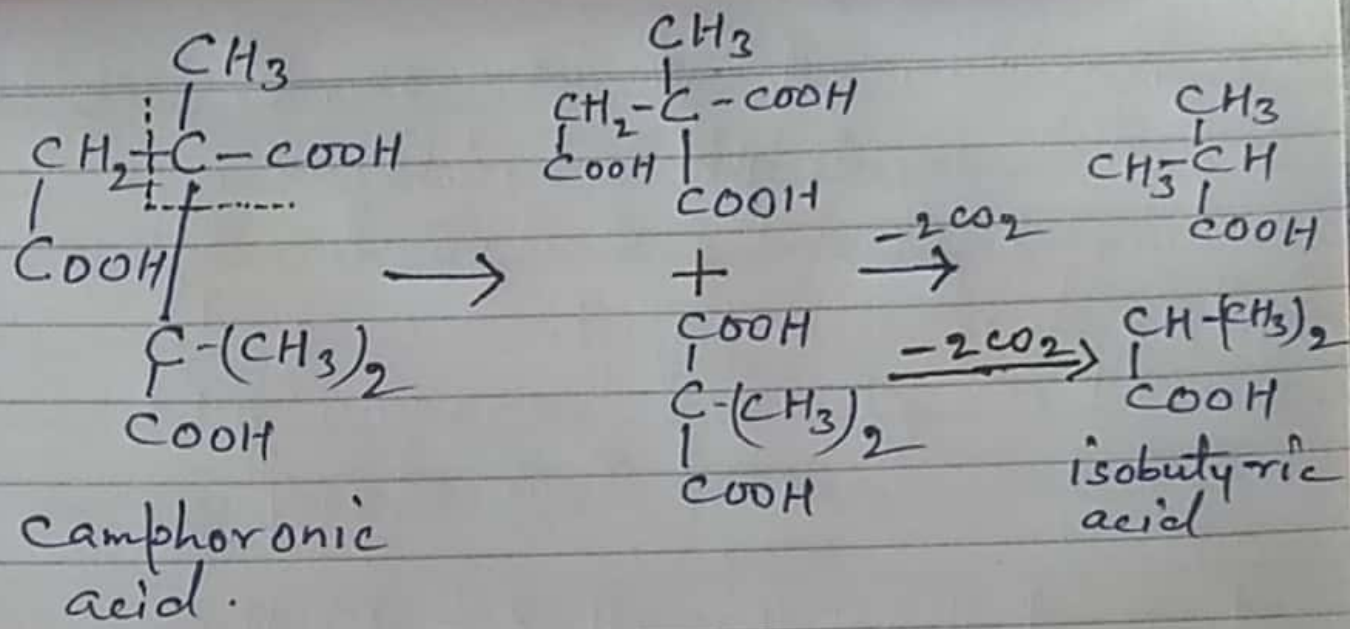 CH3
CH2-C-COOH
COOH
C-(CH3)2
COOH
Camphoronic
acid.
→
CH3
CH2-C-COOH
COOH
COOH
+
COOH
C-(CH3)2
COOH
-2CO2
→
-2CO2
→
CH3
CH3-CH
COOH
CH-(CH3)2
COOH
isobutyric
acid